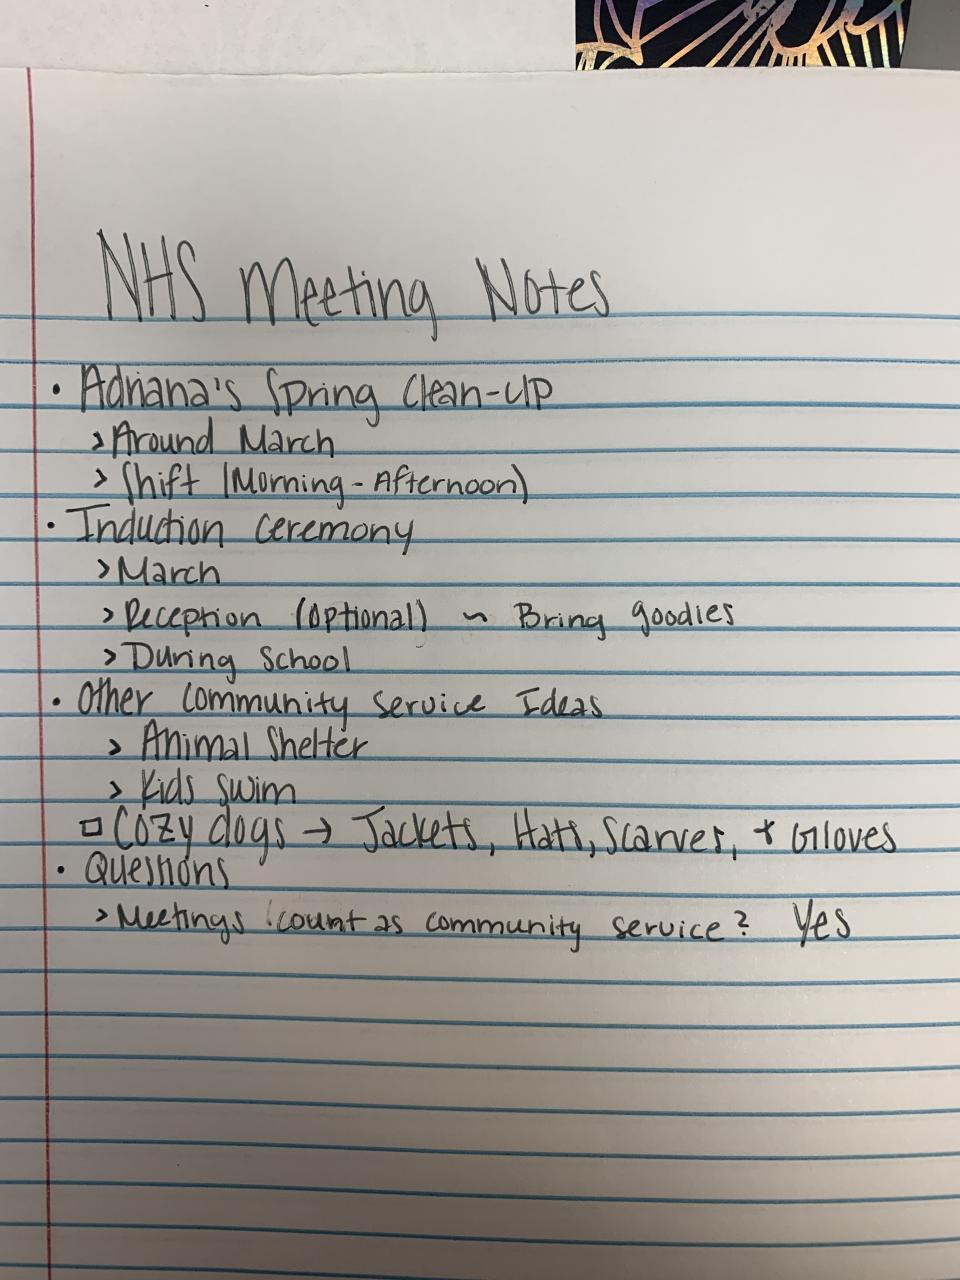 NHS Meeting Notes
• Adriana's Spring Clean-up
> Around March
> Shift (Morning - Afternoon)
• Induction Ceremony
> March
> Reception (optional) ~ Bring goodies
> During School
• Other Community Service Ideas
> Animal Shelter
> Kids Swim
□ Cozy dogs → Jackets, Hats, Scarves, + Gloves
• Questions
> Meetings count as community service? Yes